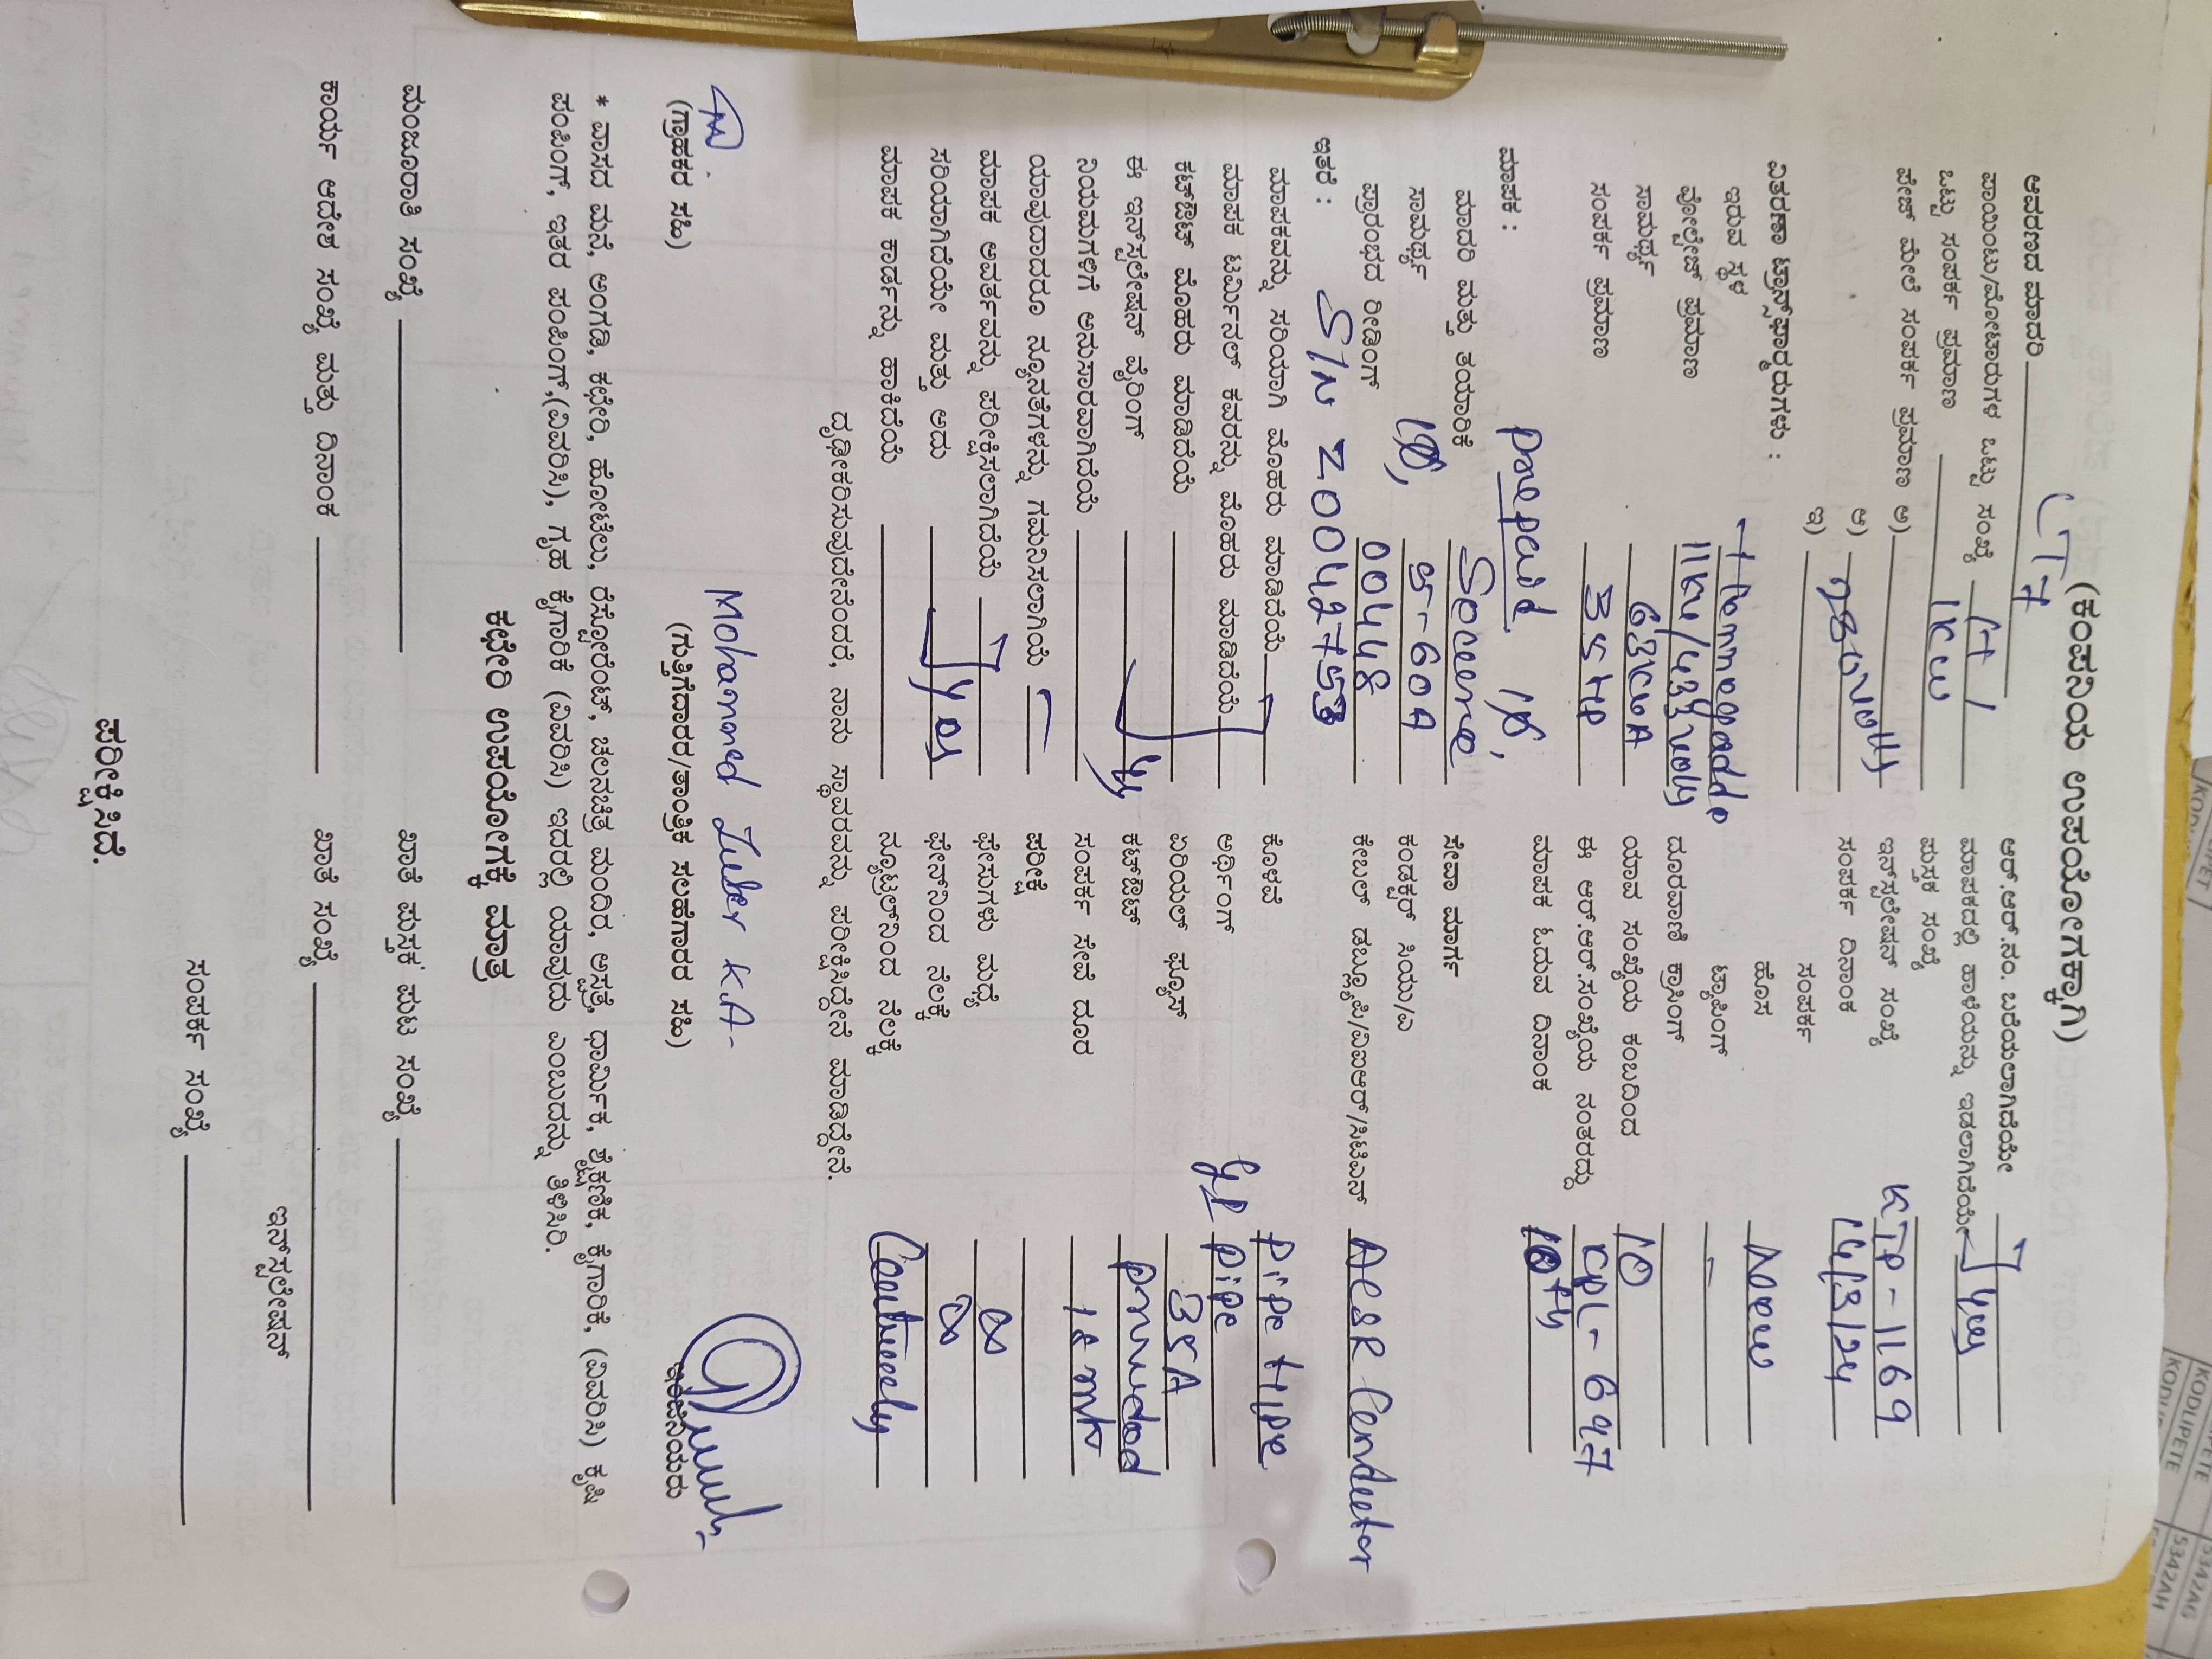 (ಕಂಪನಿಯ ಉಪಯೋಗಕ್ಕಾಗಿ)
ಆವರಣದ ಮಾದರಿ LT7
ಪಾಯಿಂಟು/ಮೋಟಾರುಗಳ ಒಟ್ಟು ಸಂಖ್ಯೆ
ಒಟ್ಟು ಸಂಪರ್ಕ ಪ್ರಮಾಣ 1KW
ಪೇಚ್ ಮೇಲೆ ಸಂಪರ್ಕ ಪ್ರಮಾಣ ಅ)
ಆ)
ಇ)
ವಿತರಣಾ ಟ್ರಾನ್ಸ್‌ಫಾರ್ಮರುಗಳು :
ಇರುವ ಸ್ಥಳ Hemmegadde
ವೋಲ್ಟೇಜ್ ಪ್ರಮಾಣ
ಸಾಮರ್ಥ್ಯ 63KVA
ಸಂಪರ್ಕ ಪ್ರಮಾಣ
ಮಾಪಕ : prepaid 1Ø,
ಮಾದರಿ ಮತ್ತು ತಯಾರಿಕೆ Secure
ಸಾಮರ್ಥ್ಯ 1Ø, 5-60A
ಪ್ರಾರಂಭದ ರೀಡಿಂಗ್ 00448
ಇತರೆ : S/N Z0042753
ಮಾಪಕವನ್ನು ಸರಿಯಾಗಿ ಮೊಹರು ಮಾಡಿದೆಯೆ
ಮಾಪಕ ಟರ್ಮಿನಲ್ ಕವರನ್ನು ಮೊಹರು ಮಾಡಿದೆಯೆ
ಕಟ್‌ಔಟ್ ಮೊಹರು ಮಾಡಿದೆಯೆ
ಈ ಇನ್‌ಸ್ಟಲೇಷನ್ ವೈರಿಂಗ್
ನಿಯಮಗಳಿಗೆ ಅನುಸಾರವಾಗಿದೆಯೆ
ಯಾವುದಾದರೂ ನ್ಯೂನತೆಗಳನ್ನು ಗಮನಿಸಲಾಗಿಯೆ
ಮಾಪಕ ಆವರ್ತವನ್ನು ಪರೀಕ್ಷಿಸಲಾಗಿದೆಯೆ
ಸರಿಯಾಗಿದೆಯೇ ಮತ್ತು ಅದು yes
ಮಾಪಕ ಕಾರ್ಡನ್ನು ಹಾಕಿದೆಯೆ
ಆರ್.ಆರ್.ನಂ. ಬರೆಯಲಾಗಿದೆಯೇ
ಮಾಪಕದಲ್ಲಿ ಹಾಳೆಯನ್ನು ಇಡಲಾಗಿದೆಯೇ yes
ಪುಸ್ತಕ ಸಂಖ್ಯೆ
ಇನ್‌ಸ್ಟಲೇಷನ್ ಸಂಖ್ಯೆ KTP-1169
ಸಂಪರ್ಕ ದಿನಾಂಕ 14/3/24
ಸಂಪರ್ಕ
ಹೊಸ New
ಟ್ಯಾಪಿಂಗ್ -
ದೂರವಾಣಿ ಕ್ರಾಸಿಂಗ್
ಯಾವ ಸಂಖ್ಯೆಯ ಕಂಬದಿಂದ 10
ಈ ಆರ್.ಆರ್.ಸಂಖ್ಯೆಯ ನಂತರದ್ದು
ಮಾಪಕ ಓದುವ ದಿನಾಂಕ 10th
ಸೇವಾ ಮಾರ್ಗ
ಕಂಡಕ್ಟರ್ ಸಿಯು/ಎ
ಕೇಬಲ್ ಡಬ್ಲ್ಯೂಪಿ/ವಿಐಆರ್/ಸಿಟಿಎಸ್ ACSR Conductor
ಕೊಳವೆ pipe type
ಅರ್ಥಿಂಗ್ GI Pipe
ಏರಿಯಲ್ ಫ್ಯೂಸ್ 35A
ಕಟ್‌ಔಟ್ provided
ಸಂಪರ್ಕ ಸೇವೆ ದೂರ
ಪರೀಕ್ಷೆ
ಫೇಸುಗಳು ಮಧ್ಯೆ ∞
ಫೇಸ್‌ನಿಂದ ನೆಲಕ್ಕೆ ∞
ನ್ಯೂಟ್ರಲ್‌ನಿಂದ ನೆಲಕ್ಕೆ Continuity
ದೃಢೀಕರಿಸುವುದೇನೆಂದರೆ, ನಾನು ಸ್ಥಾವರವನ್ನು ಪರೀಕ್ಷಿಸಿದ್ದೇನೆ ಮಾಡಿದ್ದೇನೆ.
Mohammed Zuber K.A-
(ಗ್ರಾಹಕರ ಸಹಿ)
(ಗುತ್ತಿಗೆದಾರರ/ತಾಂತ್ರಿಕ ಸಲಹೆಗಾರರ ಸಹಿ)
ಇಂಜಿನಿಯರು
* ವಾಸದ ಮನೆ, ಅಂಗಡಿ, ಕಛೇರಿ, ಹೋಟೆಲು, ರೆಸ್ಟೋರೆಂಟ್, ಚಲನಚಿತ್ರ ಮಂದಿರ, ಆಸ್ಪತ್ರೆ, ಧಾರ್ಮಿಕ, ಶೈಕ್ಷಣಿಕ, ಕೈಗಾರಿಕೆ, (ವಿವರಿಸಿ) ಕೃಷಿ
ಪಂಪಿಂಗ್, ಇತರ ಪಂಪಿಂಗ್,(ವಿವರಿಸಿ), ಗೃಹ ಕೈಗಾರಿಕೆ (ವಿವರಿಸಿ) ಇದರಲ್ಲಿ ಯಾವುದು ಎಂಬುದನ್ನು ತಿಳಿಸಿರಿ.
ಕಛೇರಿ ಉಪಯೋಗಕ್ಕೆ ಮಾತ್ರ
ಮಂಜೂರಾತಿ ಸಂಖ್ಯೆ
ಖಾತೆ ಪುಸ್ತಕ ಪುಟ ಸಂಖ್ಯೆ
ಕಾರ್ಯ ಆದೇಶ ಸಂಖ್ಯೆ ಮತ್ತು ದಿನಾಂಕ
ಖಾತೆ ಸಂಖ್ಯೆ
ಇನ್‌ಸ್ಟಲೇಷನ್
ಸಂಪರ್ಕ ಸಂಖ್ಯೆ
ಪರೀಕ್ಷಿಸಿದೆ.
KODLIPETE
KODLIPETE
5342AG
5342AH